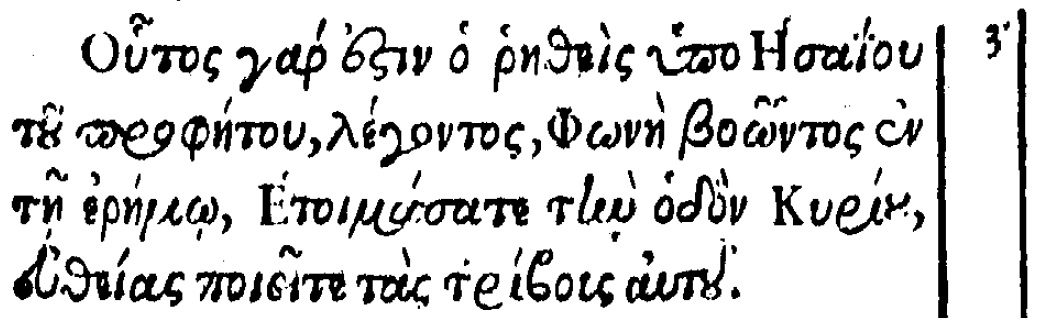 Οὗτος γάρ ἐστιν ὁ ῥηθεὶς ὑπὸ Ησαΐου 3
τοῦ προφήτου, λέγοντος, Φωνὴ βοῶντος ἐν
τῇ ἐρήμῳ, Ετοιμάσατε τὴν ὁδὸν Κυρίου,
εὐθείας ποιεῖτε τὰς τρίβους αὐτοῦ.